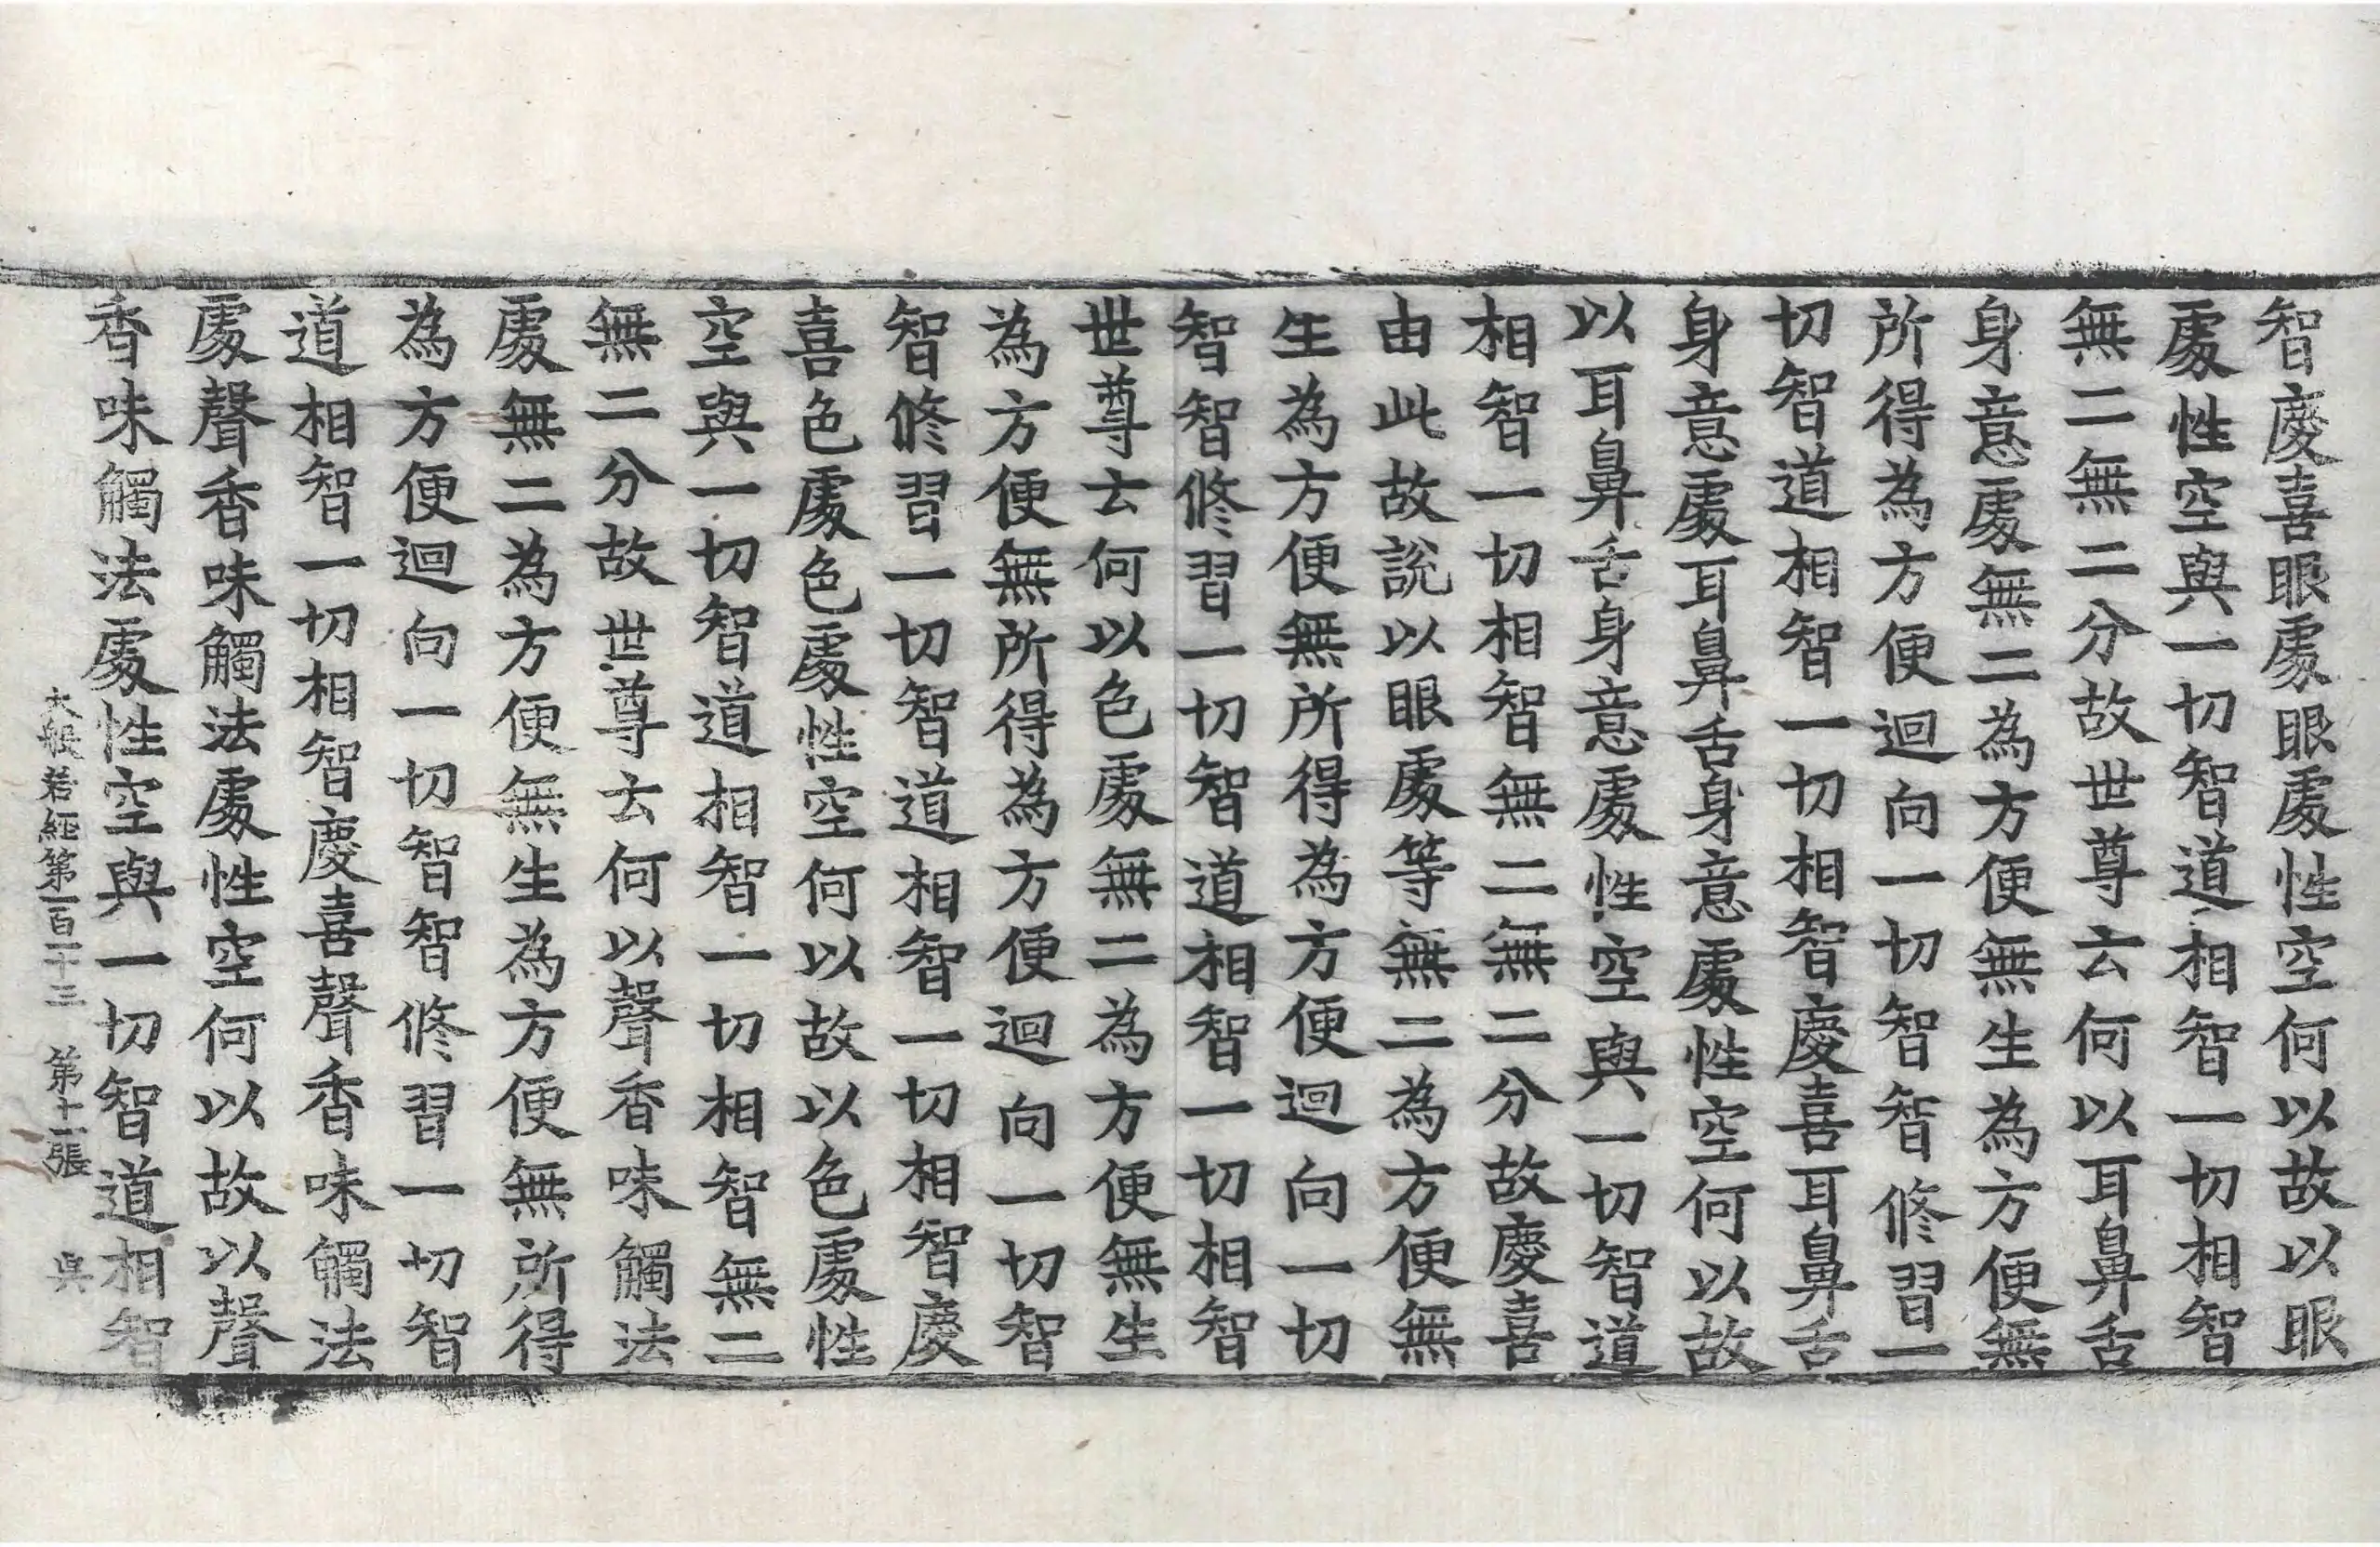 智慶喜眼處眼處性空何以故以眼
處性空與一切智道相智一切相智
無二無二分故世尊云何以耳鼻舌
身意處無二為方便無生為方便無
所得為方便迴向一切智智修習一
切智道相智一切相智慶喜耳鼻舌
身意處耳鼻舌身意處性空何以故
以耳鼻舌身意處性空與一切智道
相智一切相智無二無二分故慶喜
由此故說以眼處等無二為方便無
生為方便無所得為方便迴向一切
智智修習一切智道相智一切相智
世尊云何以色處無二為方便無生
為方便無所得為方便迴向一切智
智修習一切智道相智一切相智慶
喜色處色處性空何以故以色處性
空與一切智道相智一切相智無二
無二分故世尊云何以聲香味觸法
處無二為方便無生為方便無所得
為方便迴向一切智智修習一切智
道相智一切相智慶喜聲香味觸法
處聲香味觸法處性空何以故以聲
香味觸法處性空與一切智道相智
大般若經第一百一十三 第十一張 昃